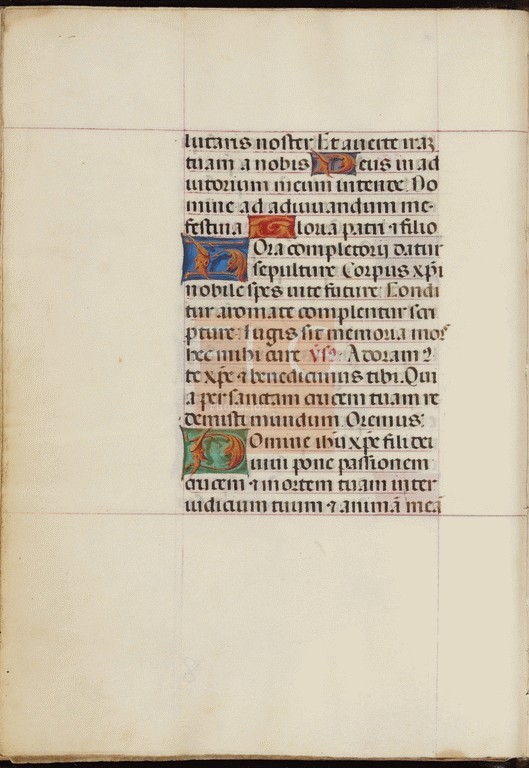 lutaris noster. Et averte iraʒ
tuam a nobis Deus in ad
iutorium meum intende. Do
mine ad adiuvandum me
festina Gloria patri ⁊ filio
Hora completorii datur
sepulture Corpus xp̄i
nobile spes vite future Condi
tur aromate complentur scri
pture. Iugis sit memoria mors
hec mihi cure v̄s̄ꝰ. Adoram⁹
te xp̄e ⁊ benedicimus tibi. Qui
a per sanctam crucem tuam re
demisti mundum. Oremus:
Domine ih̄u xp̄e fili dei
vivi pone passionem
crucem ⁊ mortem tuam inter
iudicium tuum ⁊ animā meā